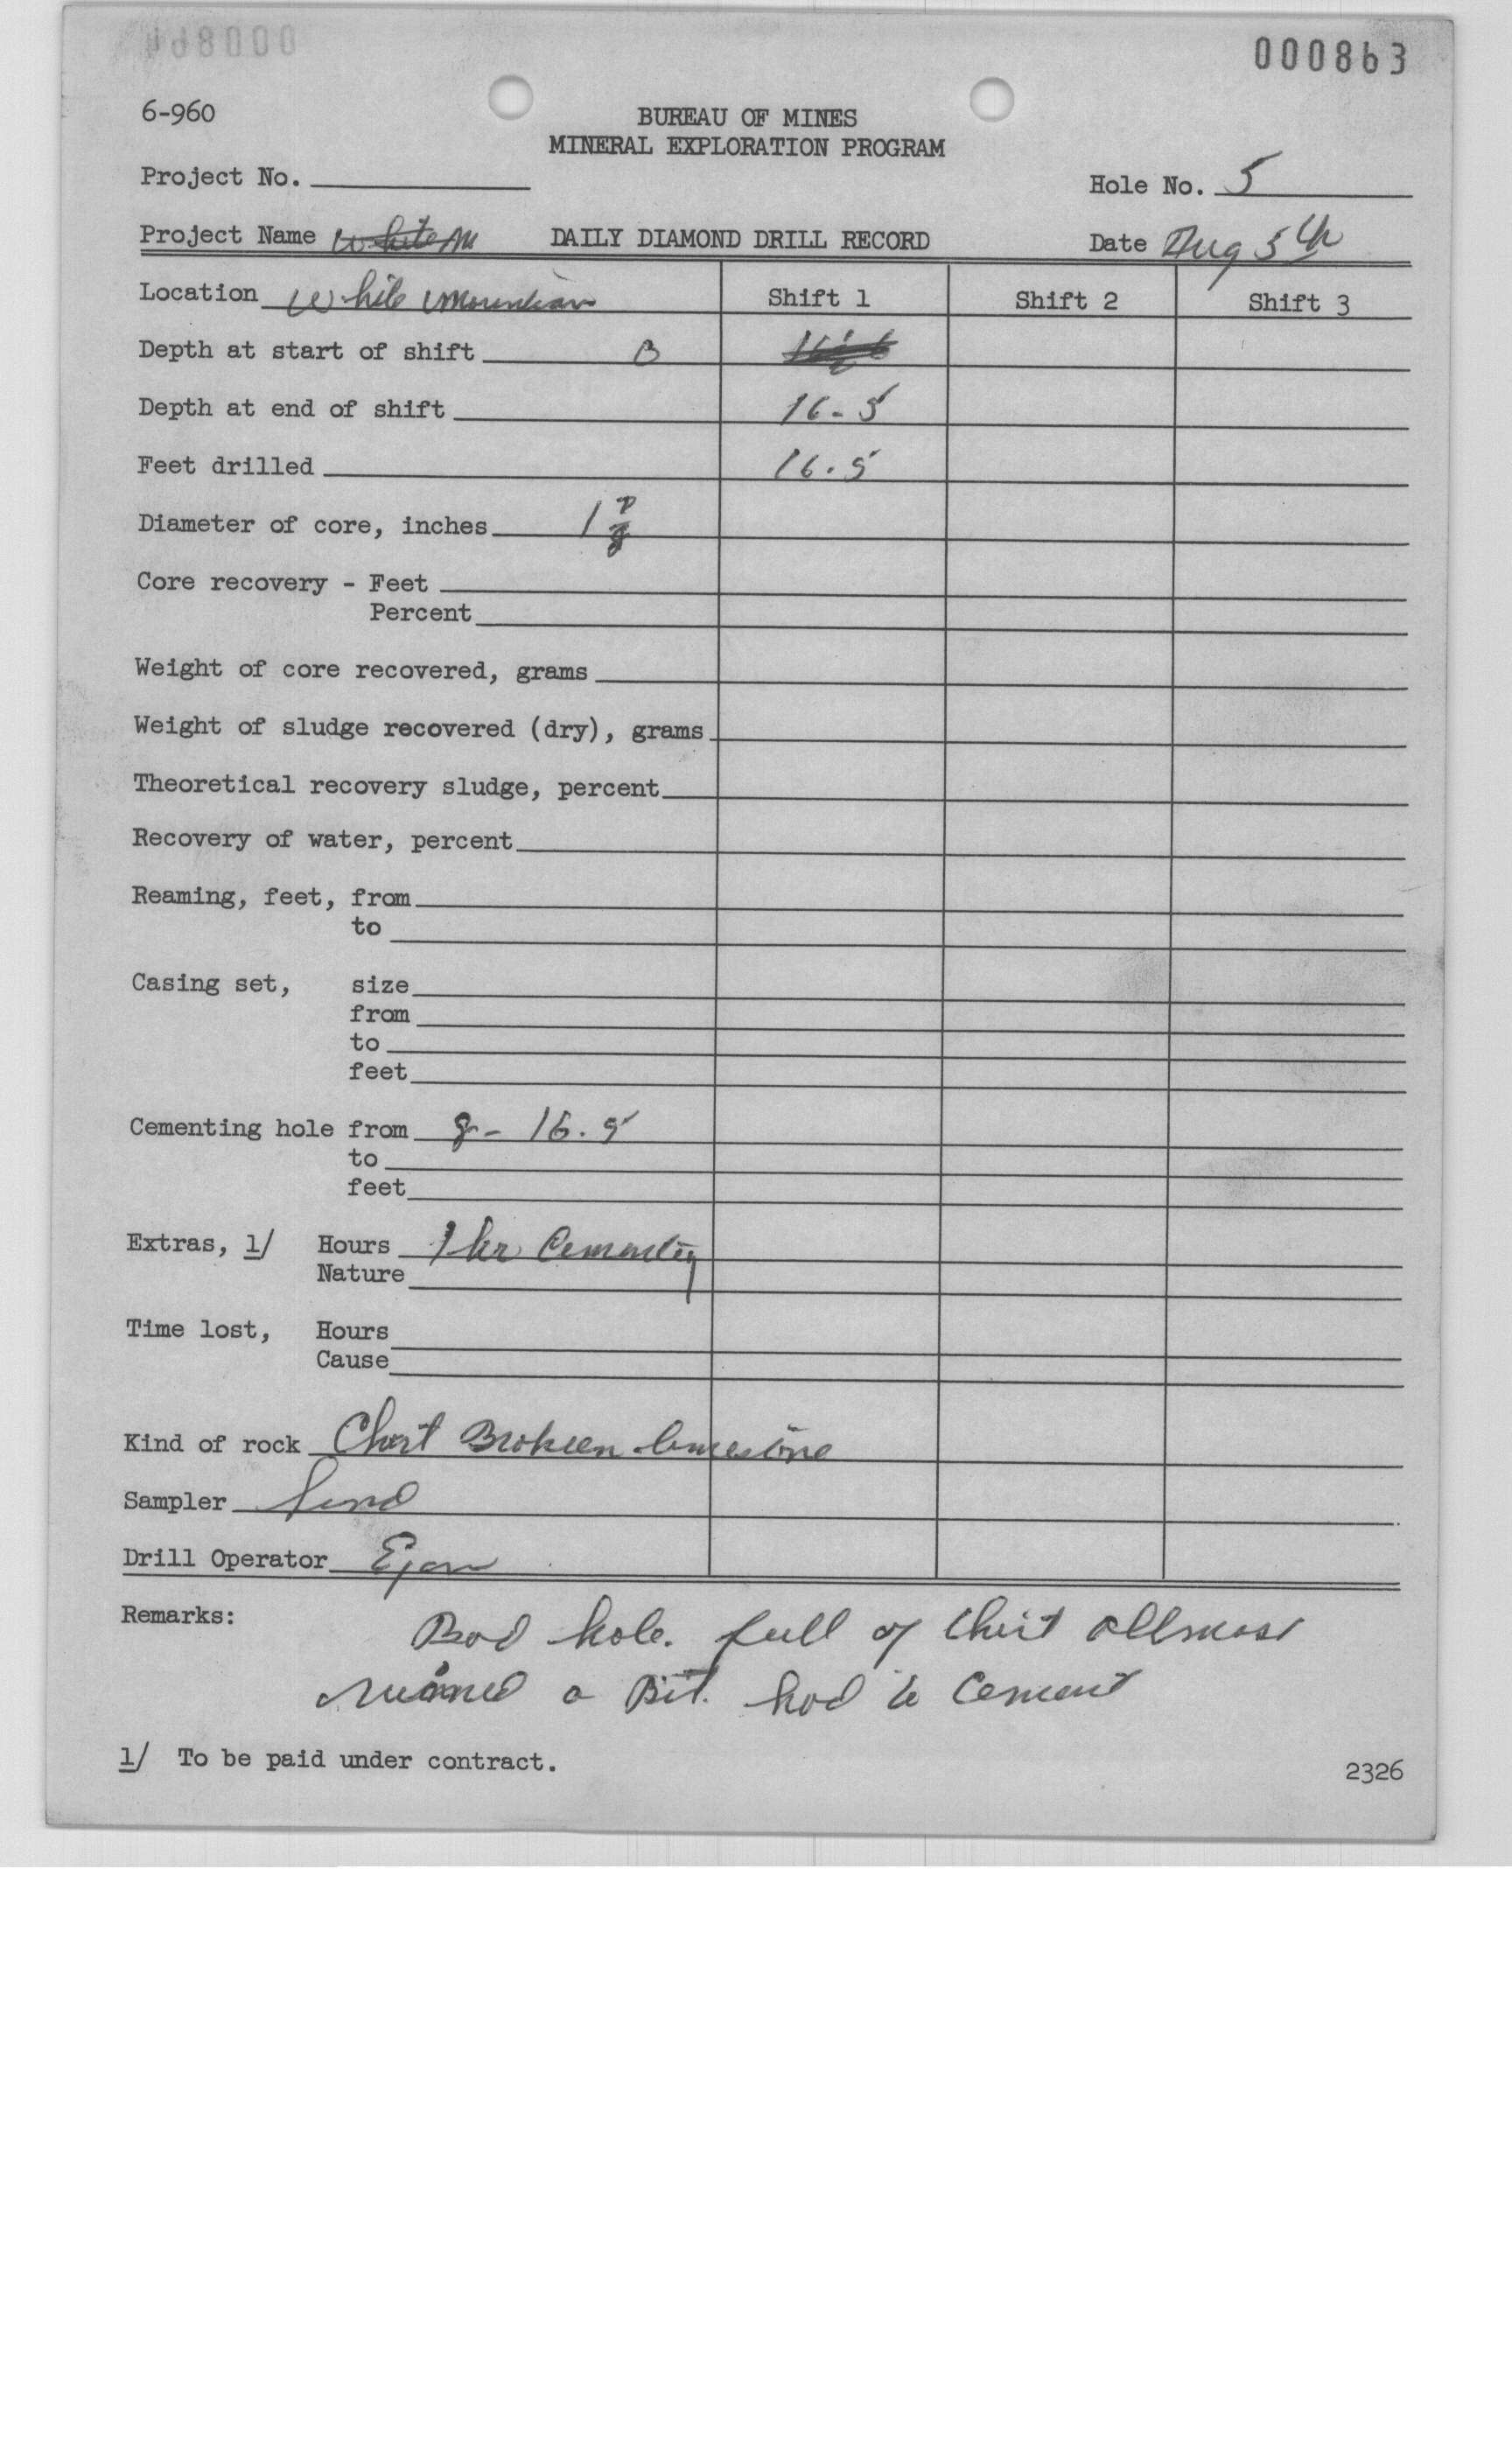 000863
6-960
BUREAU OF MINES
MINERAL EXPLORATION PROGRAM
Project No.
Hole No. 5
Project Name White M DAILY DIAMOND DRILL RECORD Date Aug 5th
Location White Mountian Shift 1 Shift 2 Shift 3
Depth at start of shift
Depth at end of shift 16-5
Feet drilled 16.5
Diameter of core, inches 1
Core recovery - Feet
Percent
Weight of core recovered, grams
Weight of sludge recovered (dry), grams
Theoretical recovery sludge, percent
Recovery of water, percent
Reaming, feet, from
to
Casing set, size
from
to
feet
Cementing hole from 8- 16.5
to
feet
Extras, 1/ Hours 1 hr Cementig
Nature
Time lost, Hours
Cause
Kind of rock Chert Broken limestone
Sampler
Drill Operator
Remarks: Bad hole. full of Chert allmost
ruined a Bit. had to Cement
1/ To be paid under contract.
2326